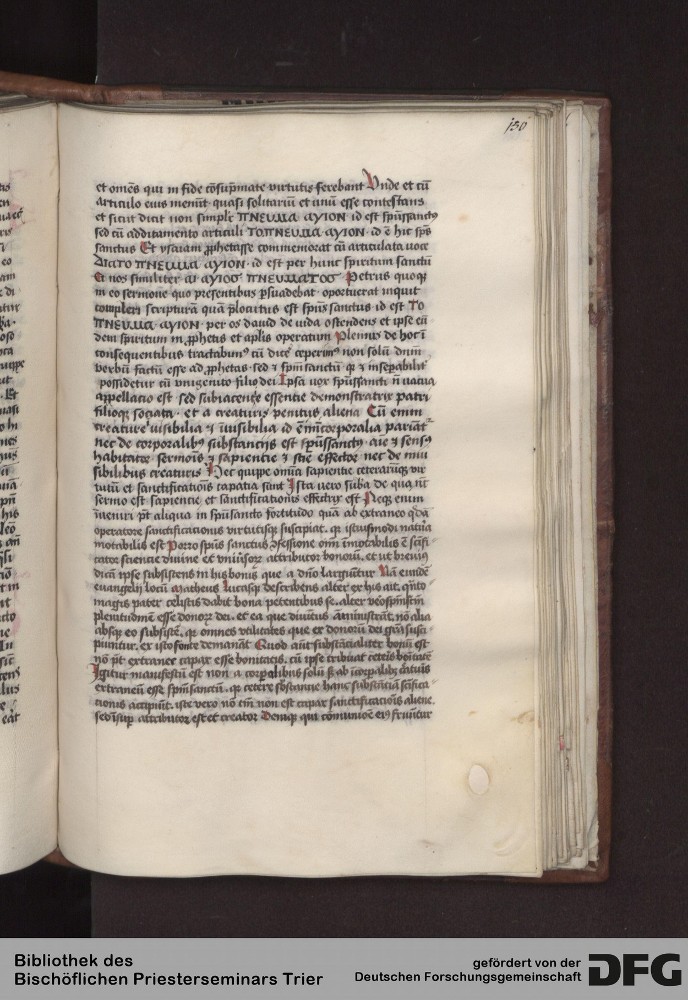 150
et om̄es qui in fide cōsūmate virtutis ferebant Vnde et cū
articulo eius meminit quasi solitariū et unū esse contestans
et sicut dicit non simple ΠΝΕΥΜΑ ΑΥΙΟΝ id est spm̄sanctū
sed cū additamento articuli ΤΟΠΝΕΥΜΑ · ΑΥΙΟΝ · id ē hic sps̄
sanctus Et ysaiam ꝓphetasse commemorat cū articulata uoce
ΔΙΑΤΟ ΠΝΕΥΜΑ ΑΥΙΟΝ · id est per hunc spiritum sanctū
Petrus quoqꝫ
in eo sermone quo presentibus ꝑsuadebat · oportuerat inquit
compleri scripturā quā plocutus est sps̄ sanctus id est ΤΟ
ΠΝΕΥΜΑ · ΑΥΙΟΝ · per os dauid de iuda ostendens et ipse eū
dem spiritum in ꝓphetis et aplis operatum Plenius de hoc ī
consequentibus tractabimꝰ cū dice ceperimꝰ non solū dnm̄
verbū factū esse ad ꝓphetas · sed ⁊ spm̄ sanctū · qꝫ ⁊ inseꝑabilit
possidetur cū unigenito filio dei Ipsa uox spūssancti n̄ uacua
appellacio est · sed subiacentis essentie demonstratrix patri
filioqꝫ sociata · et a creaturis penitus aliena Cū enim
creature uisibilia ⁊ īuisibilia id ē īncorporalia ⁊ corporalia pariat
nec de corporalibꝰ substancijs est spūssanctꝰ · aīe ⁊ sensꝰ
habitator sermonis ⁊ sapientie ⁊ scīe effector nec de inui
sibilibus creaturis Hec quippe omīa sapientie ceterarūqꝫ vir
tutū et sanctificatiōis capatia sunt Ista vero sub̄a de qua nūc
sermo est sapientie et sanctificationis effectrix est Neqꝫ enim
inueniri pt̄ aliqua in spūsancto fortitudo quā ab extraneo qdā
operatore sanctificationis virtutisqꝫ suscipiat · qꝫ istiusmodi natura
motabilis est Porro sps̄ sanctus ꝯfessione omīm īmotabilis ē sanctifi
cator scientie diuine et vniuersorꝫ attributor bonorū · et ut breuius
dicā ipse subsistens in his bonis que a dn̄o largiuntur Nā eundē
euangelij locū Matheus lucasqꝫ describens alter ex his ait · quāto
magis pater celestis dabit bona petentibus se · alter vero spm̄
plenitudinem esse donorꝫ dei · et ea que diuinitus aministrātur · nō alia
absqꝫ eo subsistē · qꝫ omnes vtilitates que ex donorū dei grā susci
piuntur · ex isto fonte demanāt Quod aūt substācialiter bonū est
nō pt̄ extranee capax esse bonitatis · cū ipse tribuat ceteris bonitatē
Igitur manifestū est non a corꝑalibus solū sꝫ ab īcorꝑalibꝫ
extraneū esse spm̄ sanctū · qꝫ cetere sbstancie hanc substāciā sanctifica
cionis accipiūt · iste vero nō tm̄ non est capax sanctificatiōis aliene
sed īsuꝑ attributor est et creator Deniqꝫ qui cōmunione eiꝰ fruuntur
Bibliothek des
Bischöflichen Priesterseminars Trier
gefördert von der
Deutschen Forschungsgemeinschaft
DFG